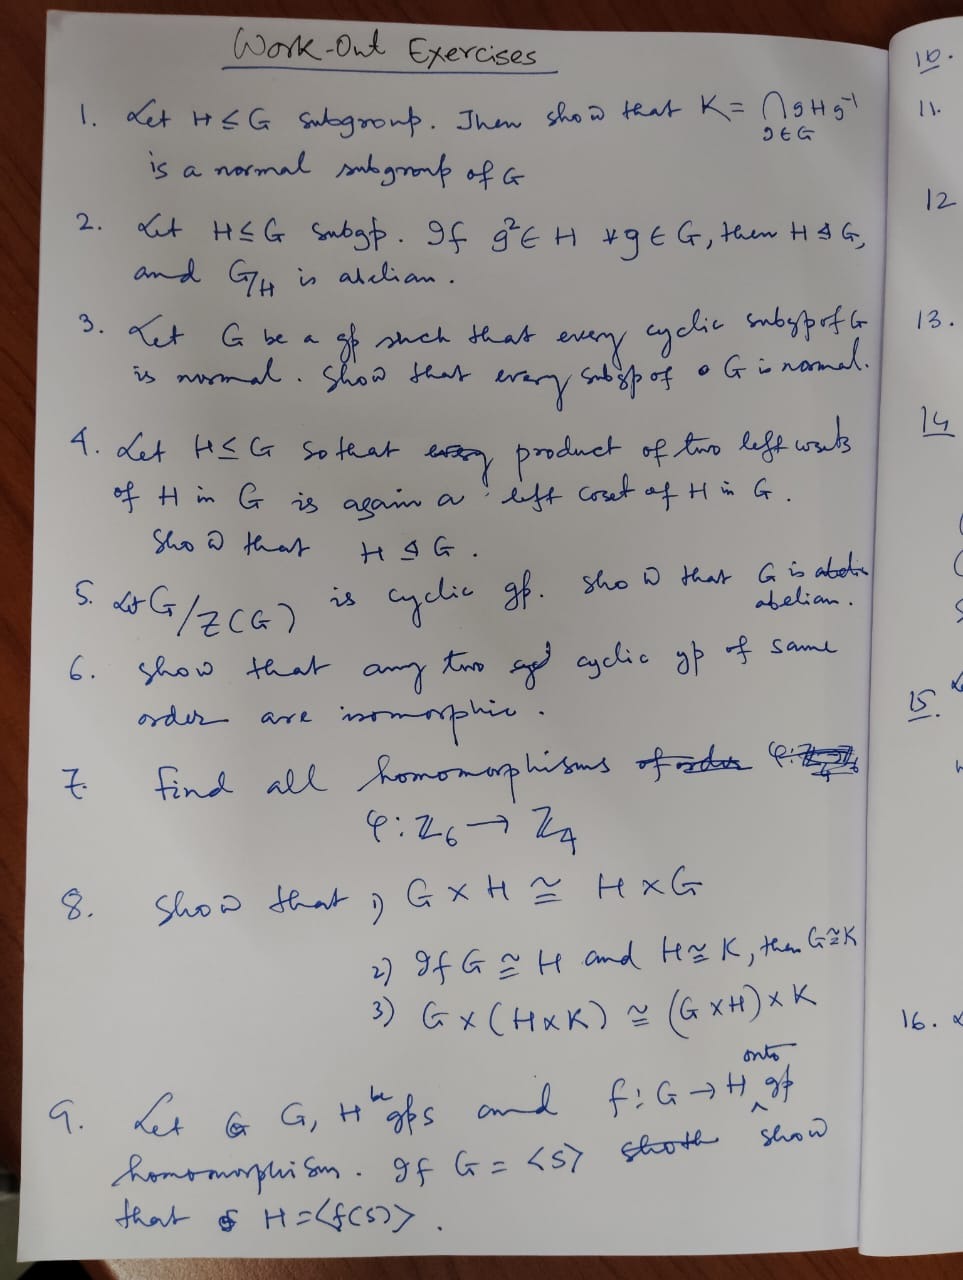 Work-Out Exercises
1. Let H ≤ G subgroup. Then show that K = ⋂ gHg⁻¹
g∈G
is a normal subgroup of G
2. Let H ≤ G subgp. If g² ∈ H ∀ g ∈ G, then H ⊴ G,
and G/H is abelian.
3. Let G be a gp such that every cyclic subgp of G
is normal. Show that every subgp of G is normal.
4. Let H ≤ G so that product of two left cosets
of H in G is again a left coset of H in G.
Show that H ⊴ G.
5. Let G/Z(G) is cyclic gp. Show that G is
abelian.
6. Show that any two cyclic gp of same
order are isomorphic.
7. Find all homomorphisms
φ: ℤ₆ → ℤ₄
8. Show that 1) G × H ≅ H × G
2) If G ≅ H and H ≅ K, then G ≅ K
3) G × (H × K) ≅ (G × H) × K
9. Let G, H be gps and f: G → H onto gp
homomorphism. If G = <S> show
that H = <f(S)>.
10.
11.
12
13.
14
15.
16.